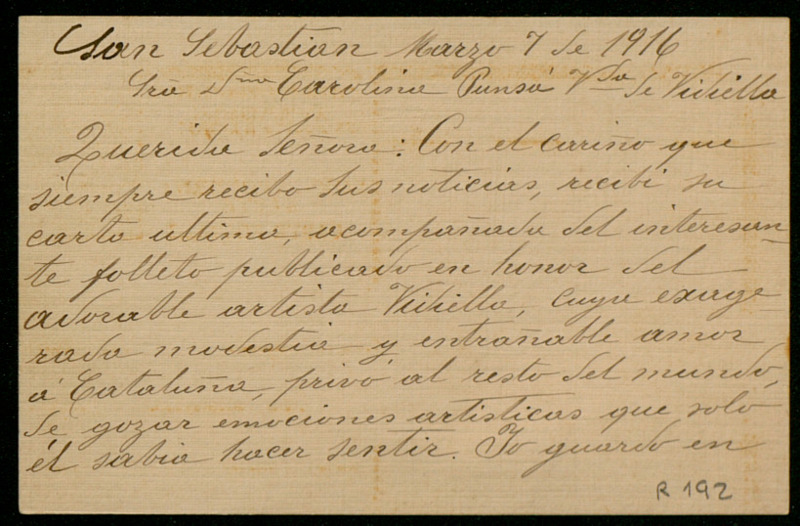 San Sebastián Marzo 7 de 1916
Sra Dña Carolina Punsá Vda de Vidiella
Querida Señora: Con el cariño que
siempre recibo sus noticias, recibí su
carta ultima, acompañada del interesan-
te folleto publicado en honor del
adorable artista Vidiella, cuya exage
rada modestia y entrañable amor
á Cataluña, privó al resto del mundo,
de gozar emociones artisticas que solo
él sabia hacer sentir. Yo guardo en
R 192